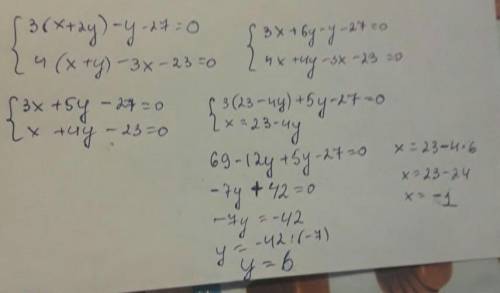 3(x+2y)-y-27=0
4(x+y)-3x-23=0
3x+6y-y-27=0
4x+4y-3x-23=0
3x+5y-27=0
x+4y-23=0
3(23-4y)+5y-27=0
x=23-4y
69-12y+5y-27=0
-7y+42=0
-7y=-42
y=-42:(-7)
y=6
x=23-4·6
x=23-24
x=-1